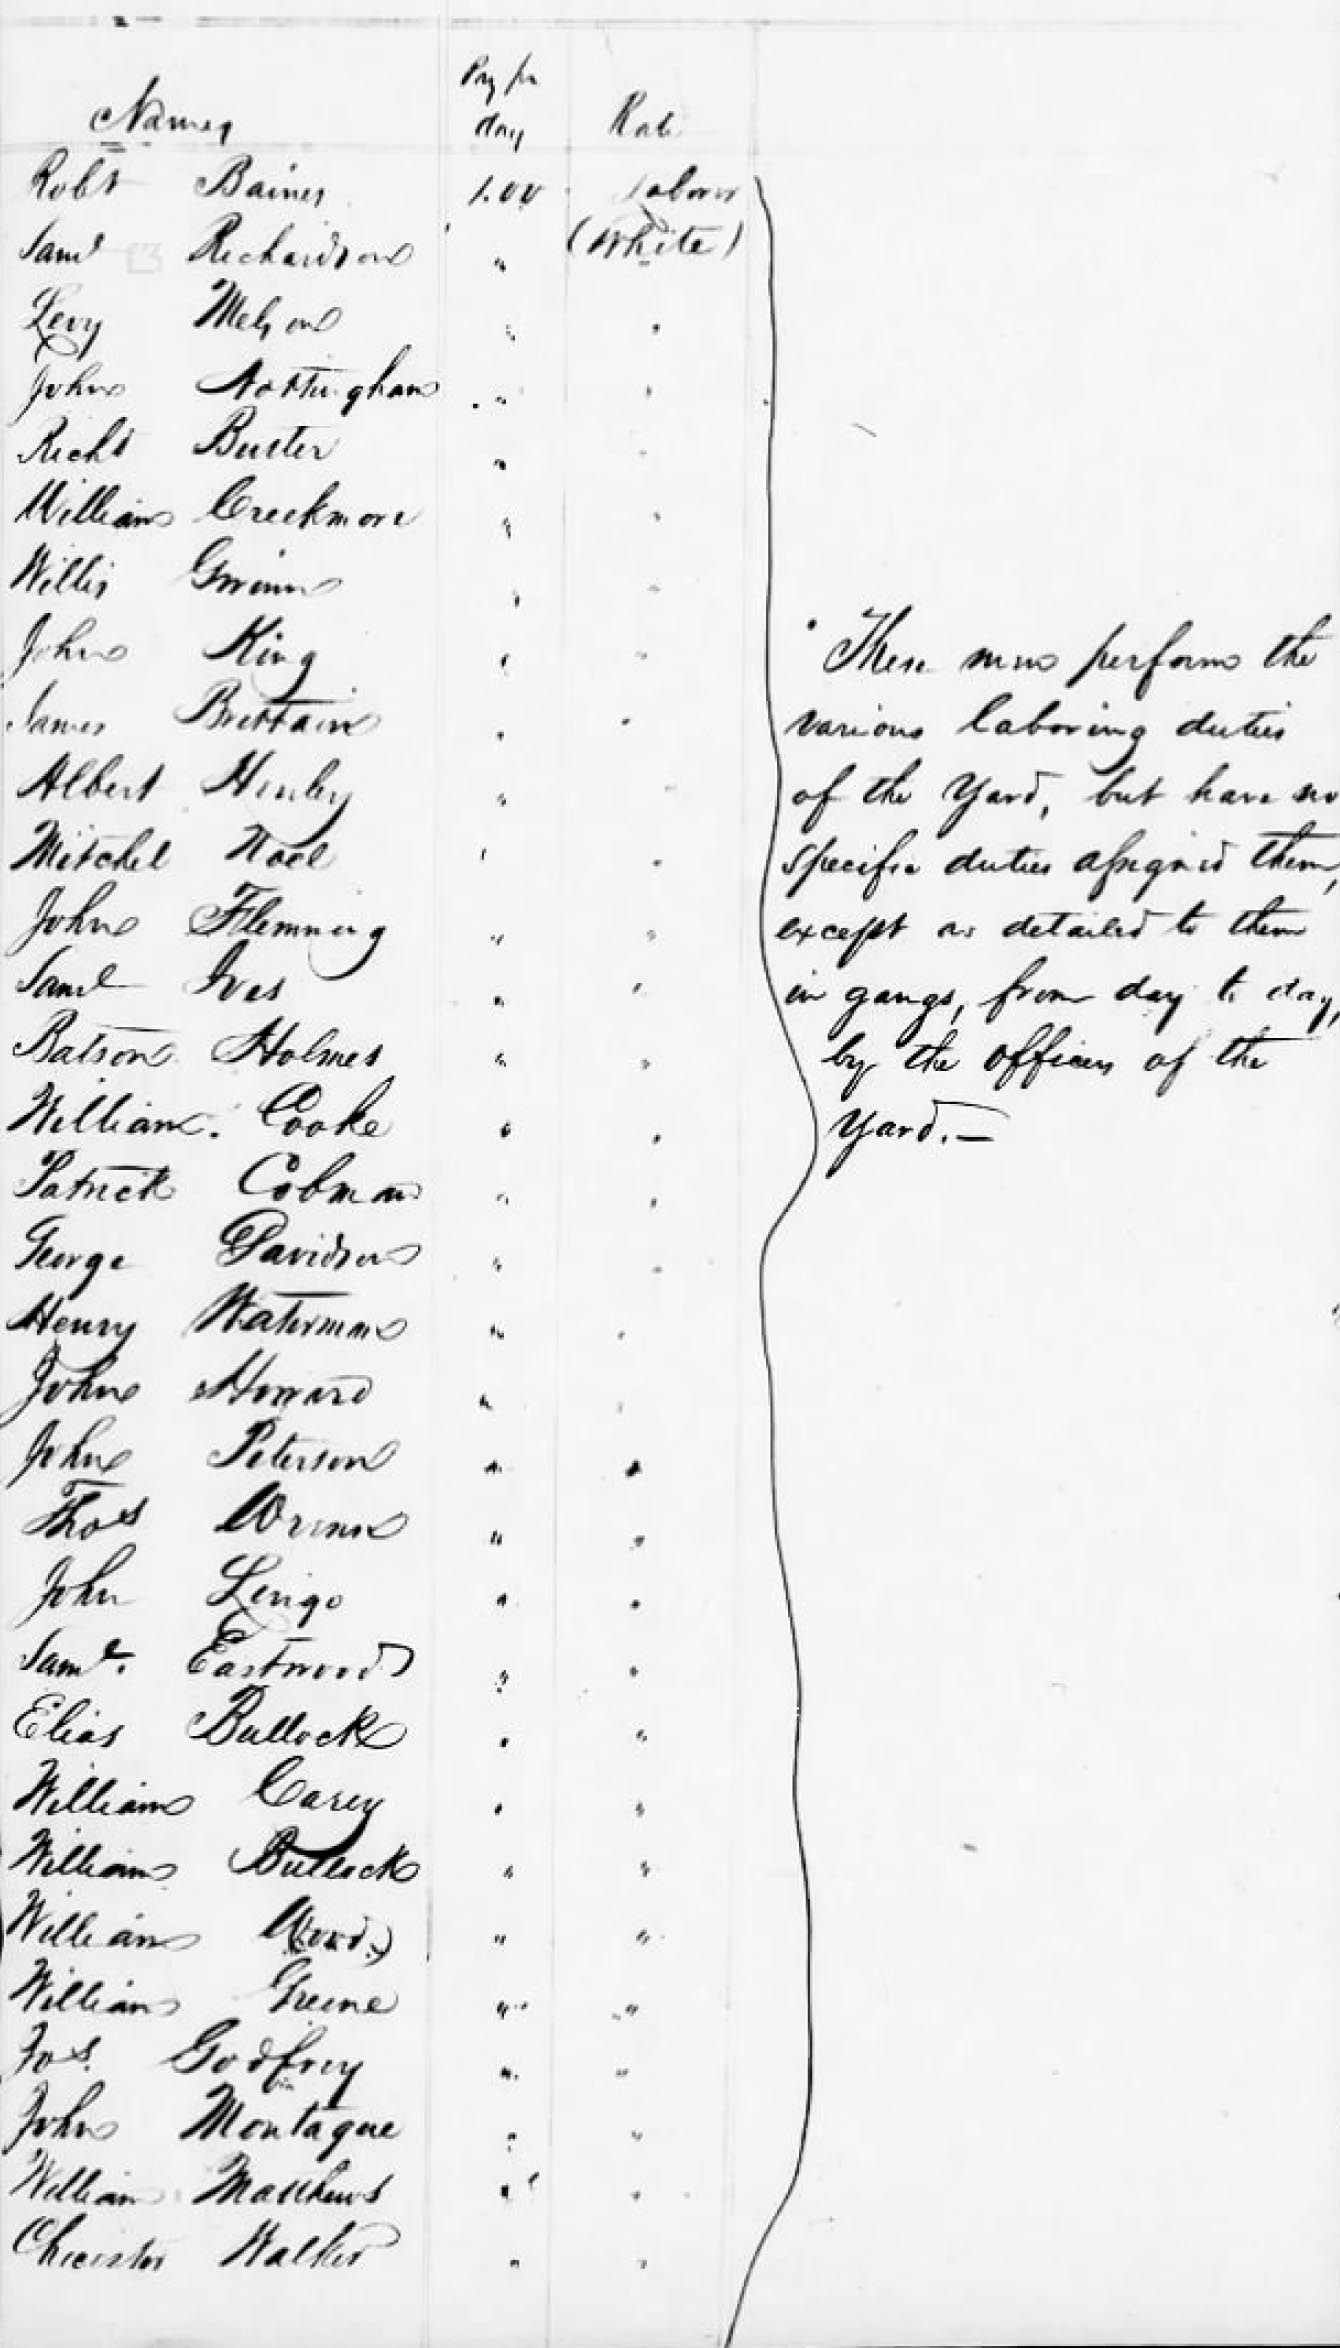 Names Pay pr day Rate
Robt Baines 1.00 Laborer
(White)
Saml Richardson "
Levy Melson " "
John Nottingham " "
Richd Buster " "
William Creekmore " "
Willis Gwinn " "
John King " "
James Brittain " "
Albert Henley " "
Mitchel Noel " "
John Flemming " "
Saml Ives " "
Batson Holmes " "
William Cooke " "
Patrick Colman " "
George Davidson " "
Henry Waterman " "
John Howard " "
John Peterson " "
Thos Wrenn " "
John Lingo " "
Saml. Eastwood " "
Elias Bullock " "
William Carey " "
William Bullock " "
William Wood " "
William Greene " "
Jos. Godfrey " "
John Montague " "
William Matthews " "
Walker " "
These men perform the
various laboring duties
of the Yard, but have no
specific duties assigned them,
except as detailed to them
in gangs, from day to day,
by the officers of the
Yard.—